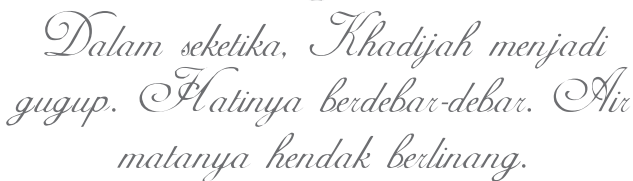 Dalam seketika, Khadijah menjadi
gugup. Hatinya berdebar-debar. Air
matanya hendak berlinang.